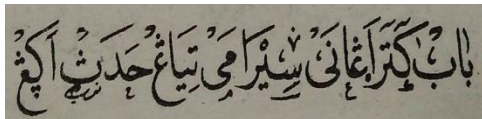 بَابْ كَتَرْاَڠَانَىْ سِيْرَامَىْ تِيَاڠْ حَدَثْ اَكَڠْ